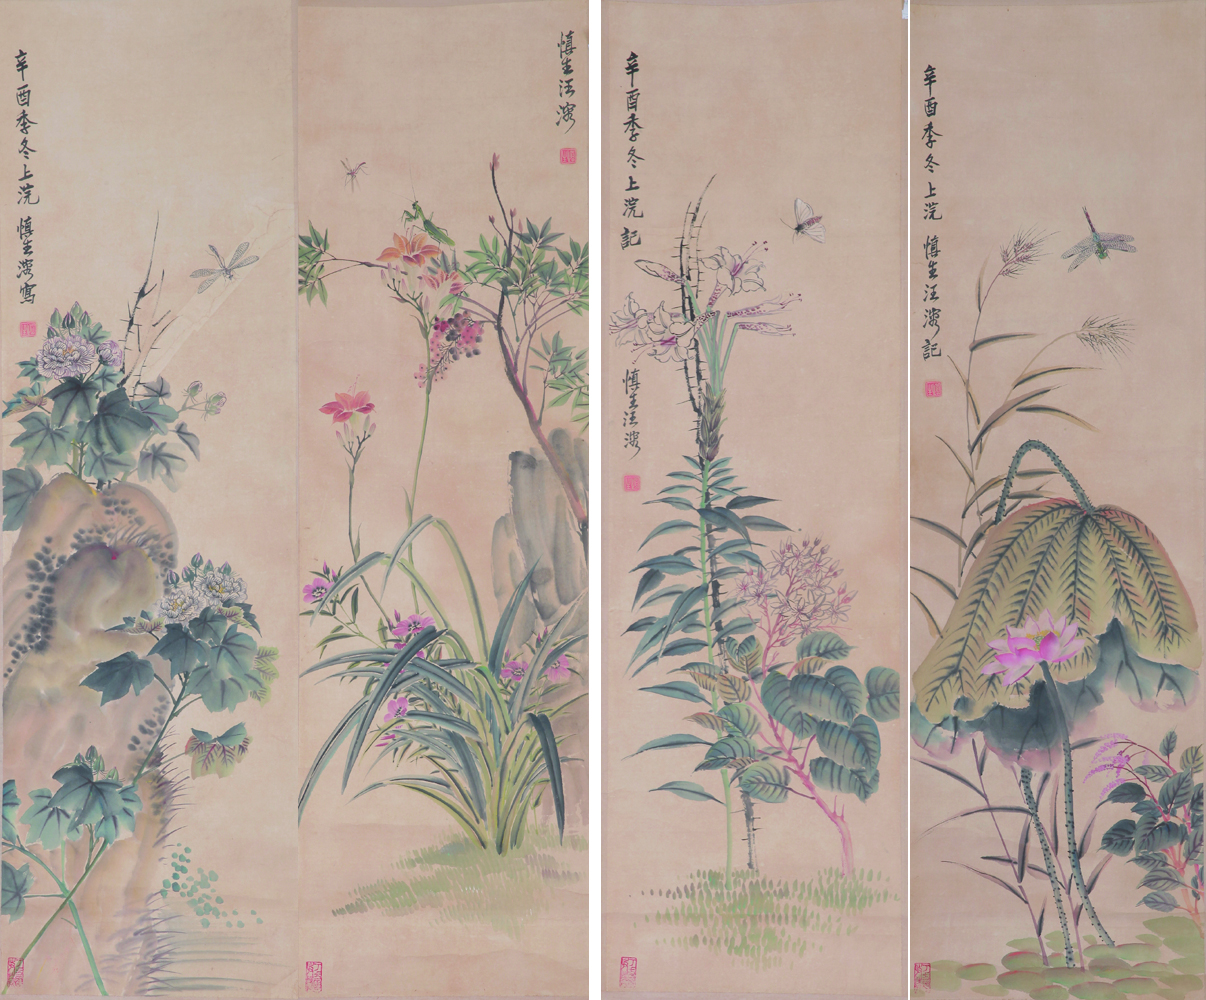 辛酉季冬上浣 慎生溶寫
慎生汪溶
辛酉季冬上浣記
慎生汪溶
辛酉季冬上浣 慎生汪溶記